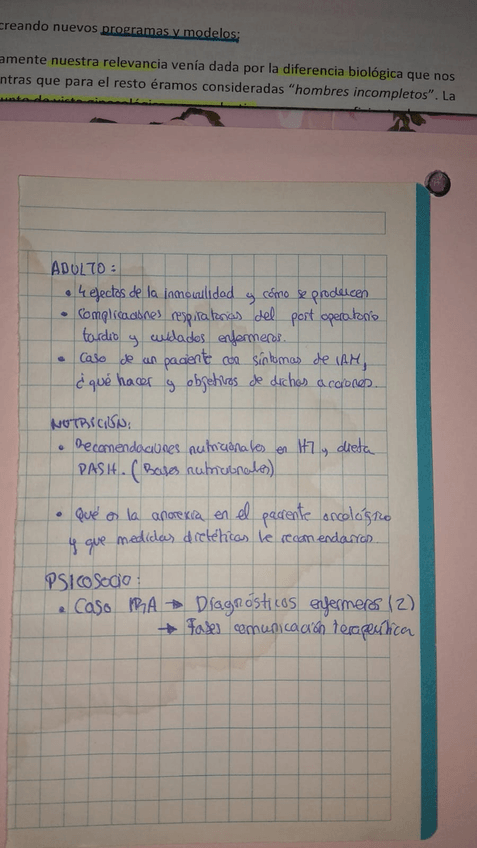 creando nuevos programas y modelos;
amente nuestra relevancia venía dada por la diferencia biológica que nos
ntras que para el resto éramos consideradas “hombres incompletos”. La
ADULTO:
• 4 efectos de la inmovilidad y cómo se producen
• Complicaciones respiratorias del post operatorio
tardío y cuidados enfermeros.
• Caso de un paciente con síntomas de IAM,
¿qué hacer y objetivos de dichas acciones.
NUTRICIÓN:
• Recomendaciones nutricionales en HT y dieta
DASH. (Bases nutricionales)
• Qué es la anorexia en el paciente oncológico
y que medidas dietéticas le recomendarías.
PSICOSOCIO:
• Caso → Diagnósticos enfermeros (2)
→ Fases comunicación terapéutica